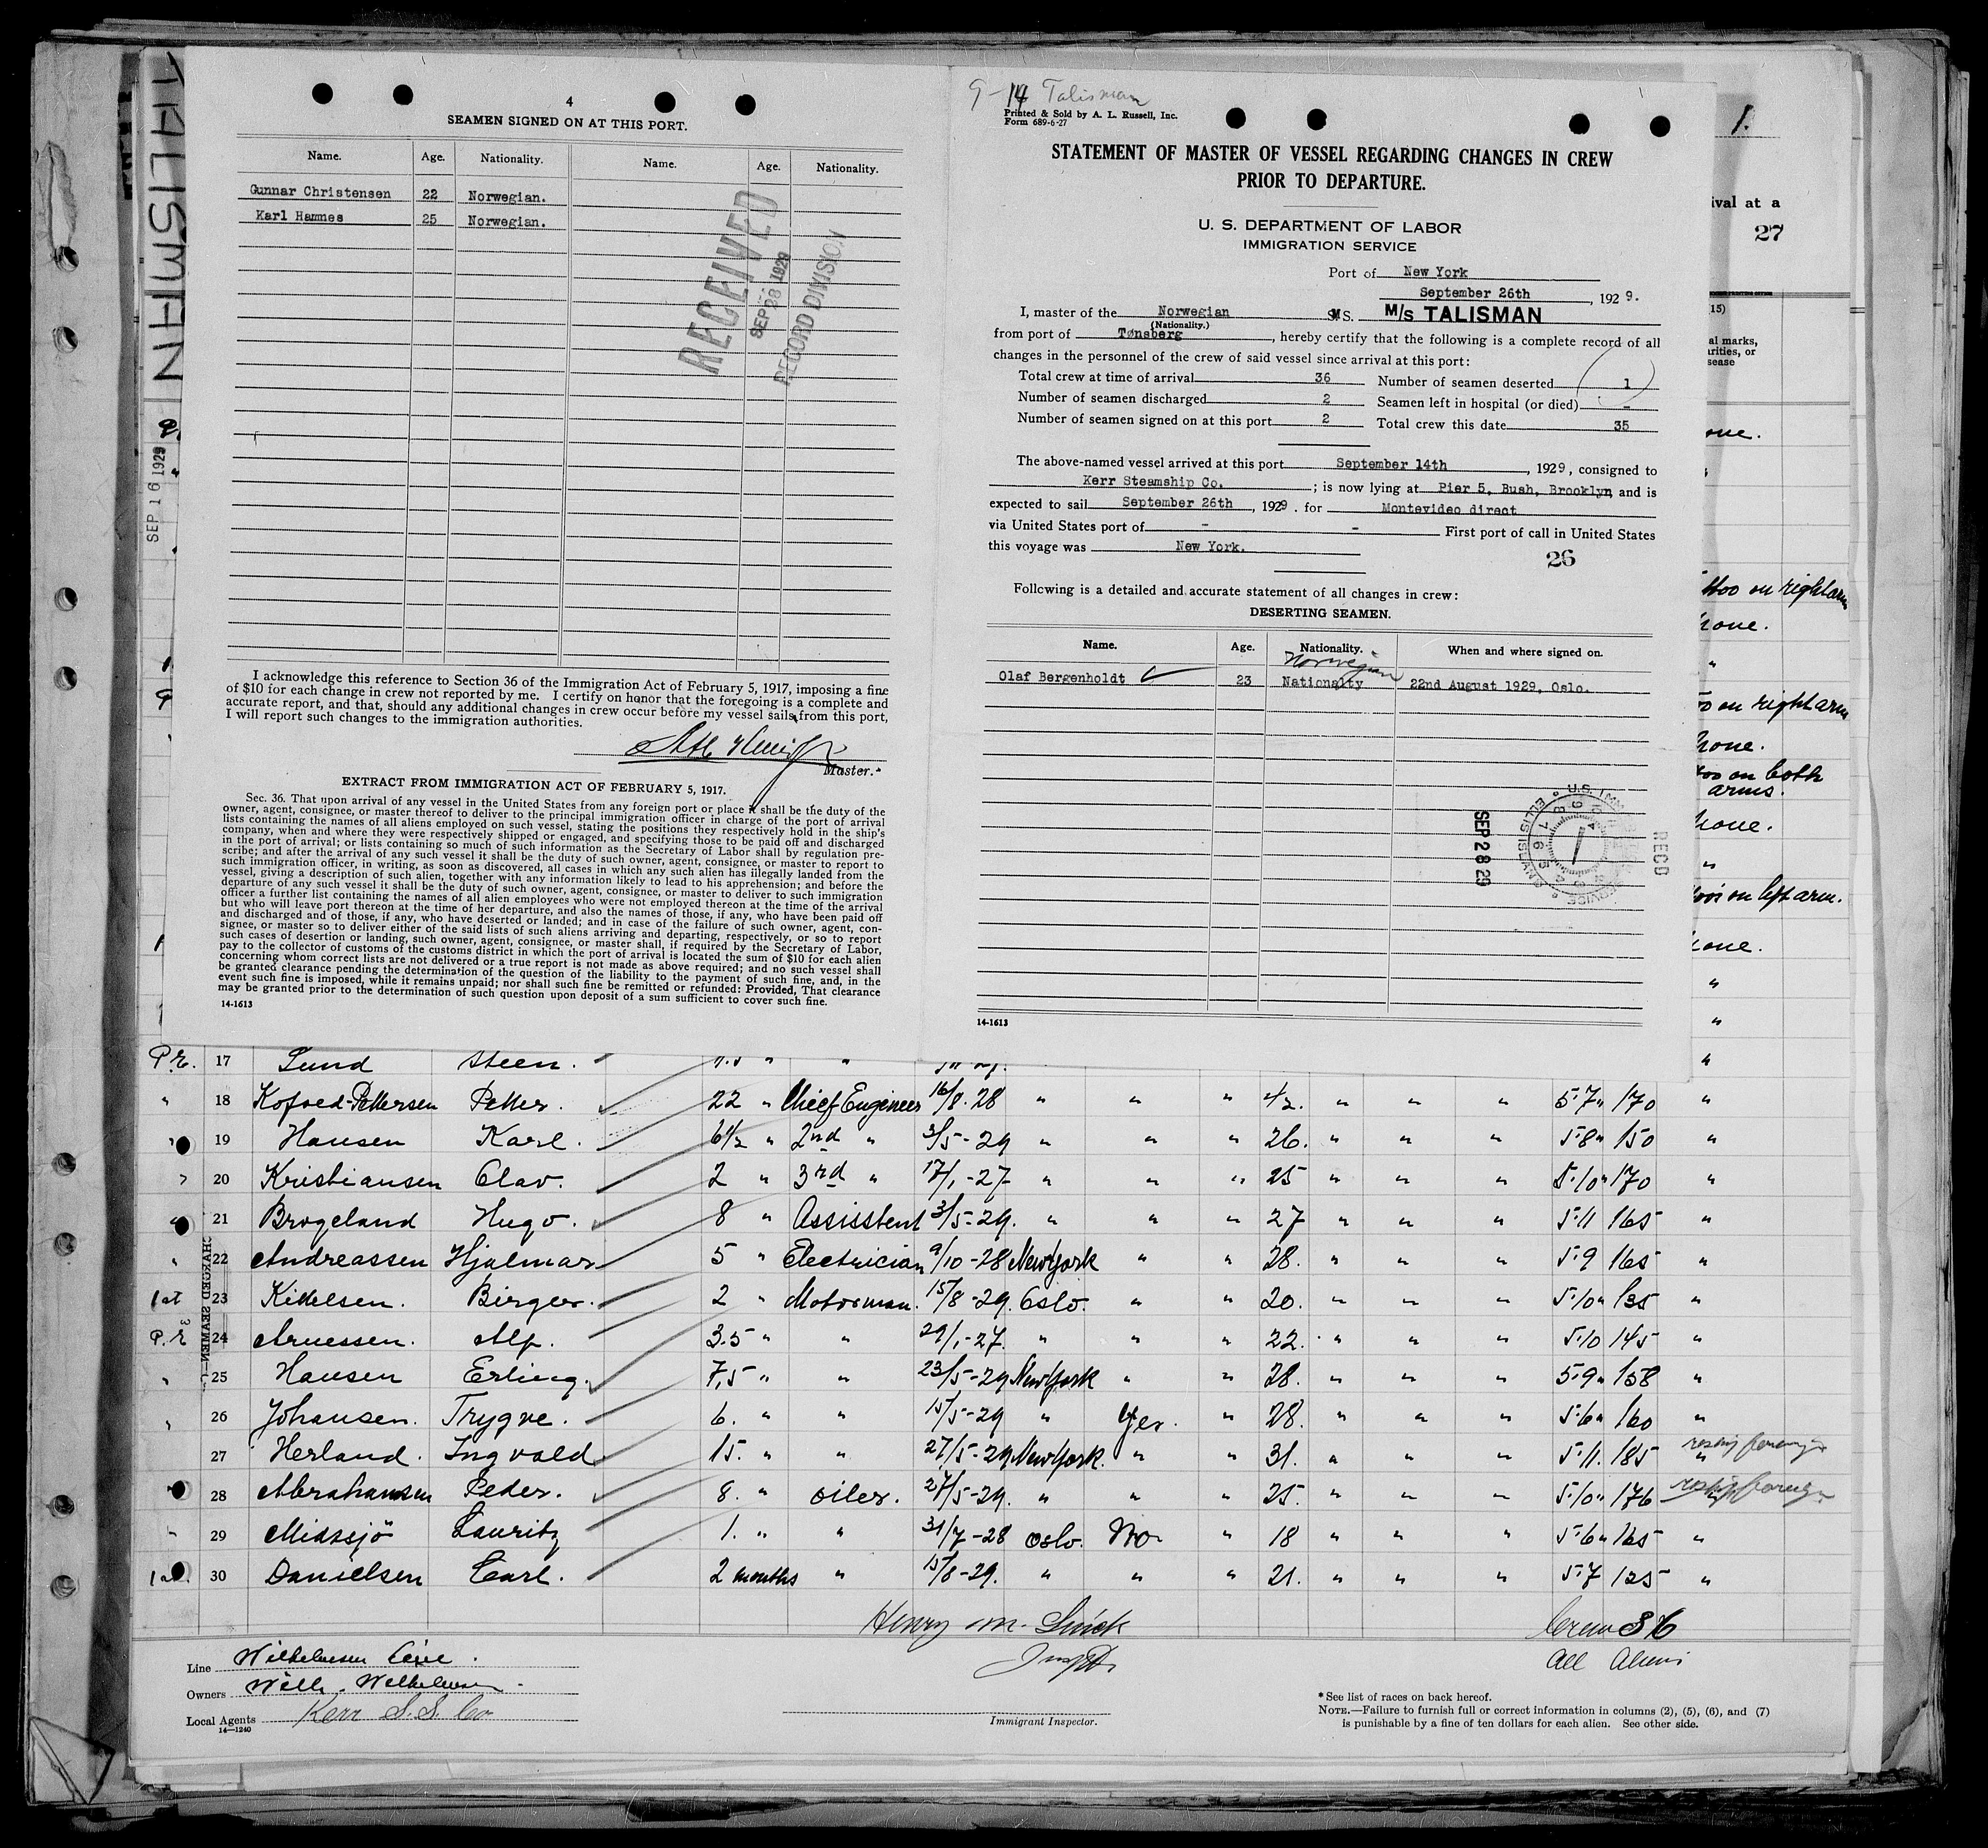 TALISMAN
SEP 16 1929
4
SEAMEN SIGNED ON AT THIS PORT.
Name. Age. Nationality. Name. Age. Nationality.
Gunnar Christensen 22 Norwegian.
Karl Hammes 25 Norwegian.
RECEIVED
SEP 28 1929
RECORD DIVISION
I acknowledge this reference to Section 36 of the Immigration Act of February 5, 1917, imposing a fine
of $10 for each change in crew not reported by me. I certify on honor that the foregoing is a complete and
accurate report, and that, should any additional changes in crew occur before my vessel sails from this port,
I will report such changes to the immigration authorities.
Master.
EXTRACT FROM IMMIGRATION ACT OF FEBRUARY 5, 1917.
Sec. 36. That upon arrival of any vessel in the United States from any foreign port or place it shall be the duty of the
owner, agent, consignee, or master thereof to deliver to the principal immigration officer in charge of the port of arrival
lists containing the names of all aliens employed on such vessel, stating the positions they respectively hold in the ship's
company, when and where they were respectively shipped or engaged, and specifying those to be paid off and discharged
in the port of arrival; or lists containing so much of such information as the Secretary of Labor shall by regulation pre-
scribe; and after the arrival of any such vessel it shall be the duty of such owner, agent, consignee, or master to report to
such immigration officer, in writing, as soon as discovered, all cases in which any such alien has illegally landed from the
vessel, giving a description of such alien, together with any information likely to lead to his apprehension; and before the
departure of any such vessel it shall be the duty of such owner, agent, consignee, or master to deliver to such immigration
officer a further list containing the names of all alien employees who were not employed thereon at the time of the arrival
but who will leave port thereon at the time of her departure, and also the names of those, if any, who have been paid off
and discharged and of those, if any, who have deserted or landed; and in case of the failure of such owner, agent, con-
signee, or master so to deliver either of the said lists of such aliens arriving and departing, respectively, or so to report
such cases of desertion or landing, such owner, agent, consignee, or master shall, if required by the Secretary of Labor,
pay to the collector of customs of the customs district in which the port of arrival is located the sum of $10 for each alien
concerning whom correct lists are not delivered or a true report is not made as above required; and no such vessel shall
be granted clearance pending the determination of the question of the liability to the payment of such fine, and, in the
event such fine is imposed, while it remains unpaid; nor shall such fine be remitted or refunded: Provided, That clearance
may be granted prior to the determination of such question upon deposit of a sum sufficient to cover such fine.
14-1613
9-14 Talisman
Printed & Sold by A. L. Russell, Inc.
Form 689-6-27
STATEMENT OF MASTER OF VESSEL REGARDING CHANGES IN CREW
PRIOR TO DEPARTURE.
U. S. DEPARTMENT OF LABOR
IMMIGRATION SERVICE
Port of New York
September 26th, 1929.
I, master of the Norwegian M S. M/S TALISMAN
(Nationality.)
from port of Tønsberg, hereby certify that the following is a complete record of all
changes in the personnel of the crew of said vessel since arrival at this port:
Total crew at time of arrival 36 Number of seamen deserted 1
Number of seamen discharged 2 Seamen left in hospital (or died) -
Number of seamen signed on at this port 2 Total crew this date 35
The above-named vessel arrived at this port September 14th, 1929, consigned to
Kerr Steamship Co.; is now lying at Pier 5, Bush, Brooklyn, and is
expected to sail September 26th, 1929. for Montevideo direct
via United States port of - - First port of call in United States
this voyage was New York.
26
Following is a detailed and accurate statement of all changes in crew:
DESERTING SEAMEN.
Name. Age. Nationality. When and where signed on.
Norwegian
Olaf Bergenholdt ✓ 23 Nationalty 22nd August 1929, Oslo.
SEP 28 29
U.S. IMM
ELLIS ISLAND
RECD
14-1613
1.
ival at a
27
15)
al marks,
arities, or
sease
one.
ttoo on right arm
none.
"
oo on right arm
none.
too on both
arms.
none.
"
toos on left arm.
none.
"
"
"
P.E. 17 Lund Steen.
" 18 Kofoed-Pettersen Petter. 22 " Chief Engineer 16/8-28 " " " 42. " " " 5'7" 170 "
" 19 Hansen Karl. 6 1/2 " 2nd " 3/5-29 " " " 26. " " " 5'8" 150 "
" 20 Kristiansen Olav. 2 " 3rd " 17/1-27 " " " 25 " " " 5'10" 170 "
" 21 Brogeland Hugo. 8 " Assisstent 3/5-29. " " " 27 " " " 5'11 165 "
" 22 Andreassen Hjalmar 5 " Electrician 9/10-28 New York " " 28. " " " 5'9 165 "
1st 23 Kittelsen. Birger. 2 " Motorman. 15/8-29. Oslo. " " 20. " " " 5'10" 135 "
P.E 24 Arnessen. Alf. 3.5 " " 29/1-27. " " " 22. " " " 5'10 145 "
" 25 Hansen Erling. 7,5 " " 23/5-29 New York " " 28. " " " 5'9" 158 "
" 26 Johansen. Trygve. 6. " " 15/5-29 " Yes. " 28. " " " 5'6" 160 "
27 Herland. Ingvald 15. " " 27/5-29 New York. " " 31. " " " 5'11. 185 "
28 Abrahamsen Peder. 8. " oiler. 27/5-29. " " " 25. " " " 5'10" 176
" 29 Midtsjö Lauritz 1. " " 31/7-28 Oslo. No " 18 " " " 5'6" 165 "
1st 30 Danielsen Carl. 2 months " 15/8-29. " " " 21. " " " 5'7 125 "
Crew 36
All Aliens
Line Wilhelmsen Line.
Owners Wilh. Wilhelmsen.
Local Agents Kerr S.S. Co
14—1240
Immigrant Inspector.
* See list of races on back hereof.
NOTE.—Failure to furnish full or correct information in columns (2), (5), (6), and (7)
is punishable by a fine of ten dollars for each alien. See other side.